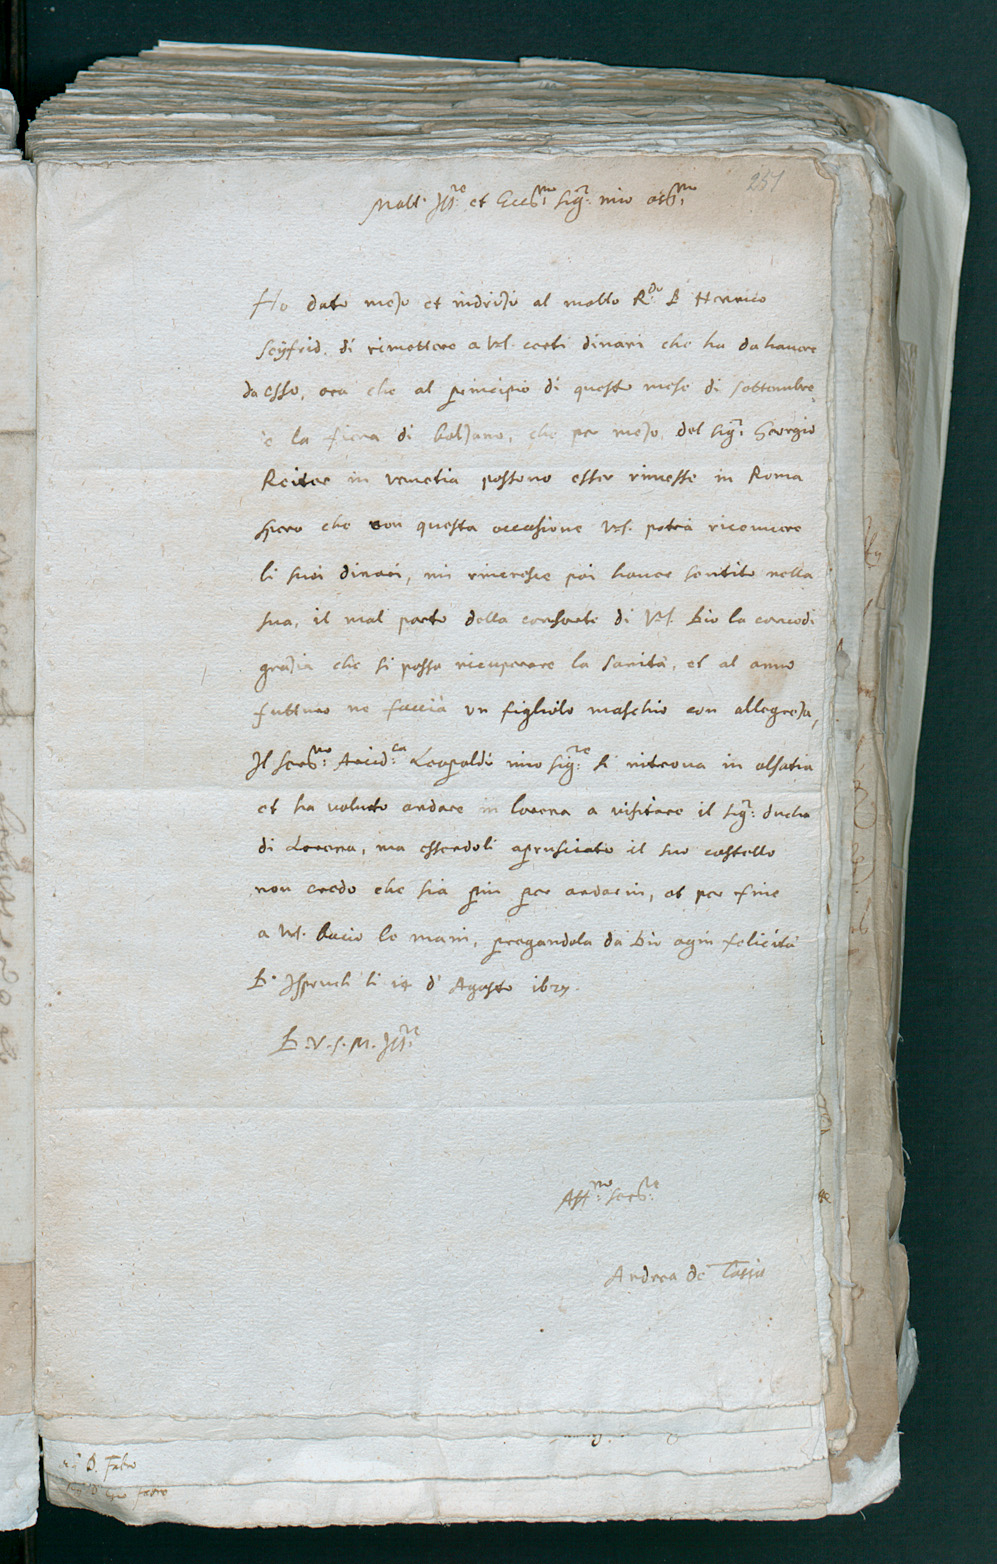 257
Molt. Ill.re et Ecc.mo Sig.r mio oss.mo
Ho dato mezo et indrizo al molto R.do D Henrico
Seÿfrid. di rimettere a VS. certi dinari che ha da havere
da esso, ora che al principio di questo mese di settembre
è la fiera di bolzano, che per mezo del sig.r Georgio
Reiter in venetia possono esser rimesse in Roma
spero che con questa occasione VS. potrà riceuere
li suoi dinari, mi rincresce poi hauer sentito nella
sua, il mal parto della consorte di VS. Dio la concedi
grazia che si possa ricuperare la sanità, et al anno
futturo ne faccia vn figliolo maschio con allegreza,
Il Ser.mo Arcid.ca Leopoldo mio sig.re si ritroua in alsatia
et ha voluto andare in lorena a visitare il sig.r ducha
di Lorena, ma essendoli abrusciato il suo castello
non credo che sia piu per andarui, et per fine
a VS. bacio le mani, pregandola da Dio ogni felicità
D. Ispruch li 14 d' Agosto 1627.
D. V. S. M. Ill.re
Aff.mo Ser.re
Andrea de Tassis
D. Fabro
fabro